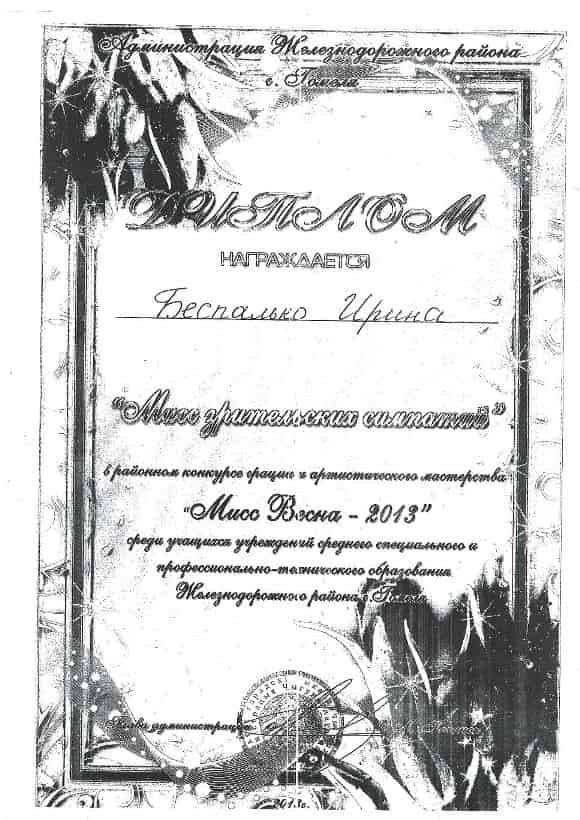 Администрация Железнодорожного района
г. Гомеля
ДИПЛОМ
НАГРАЖДАЕТСЯ
Беспалько Ирина
"Мисс зрительских симпатий"
в районном конкурсе грации и артистического мастерства
"Мисс Весна - 2013"
среди учащихся учреждений среднего специального и
профессионально-технического образования
Железнодорожного района г.Гомеля
Глава администрации
2013г.